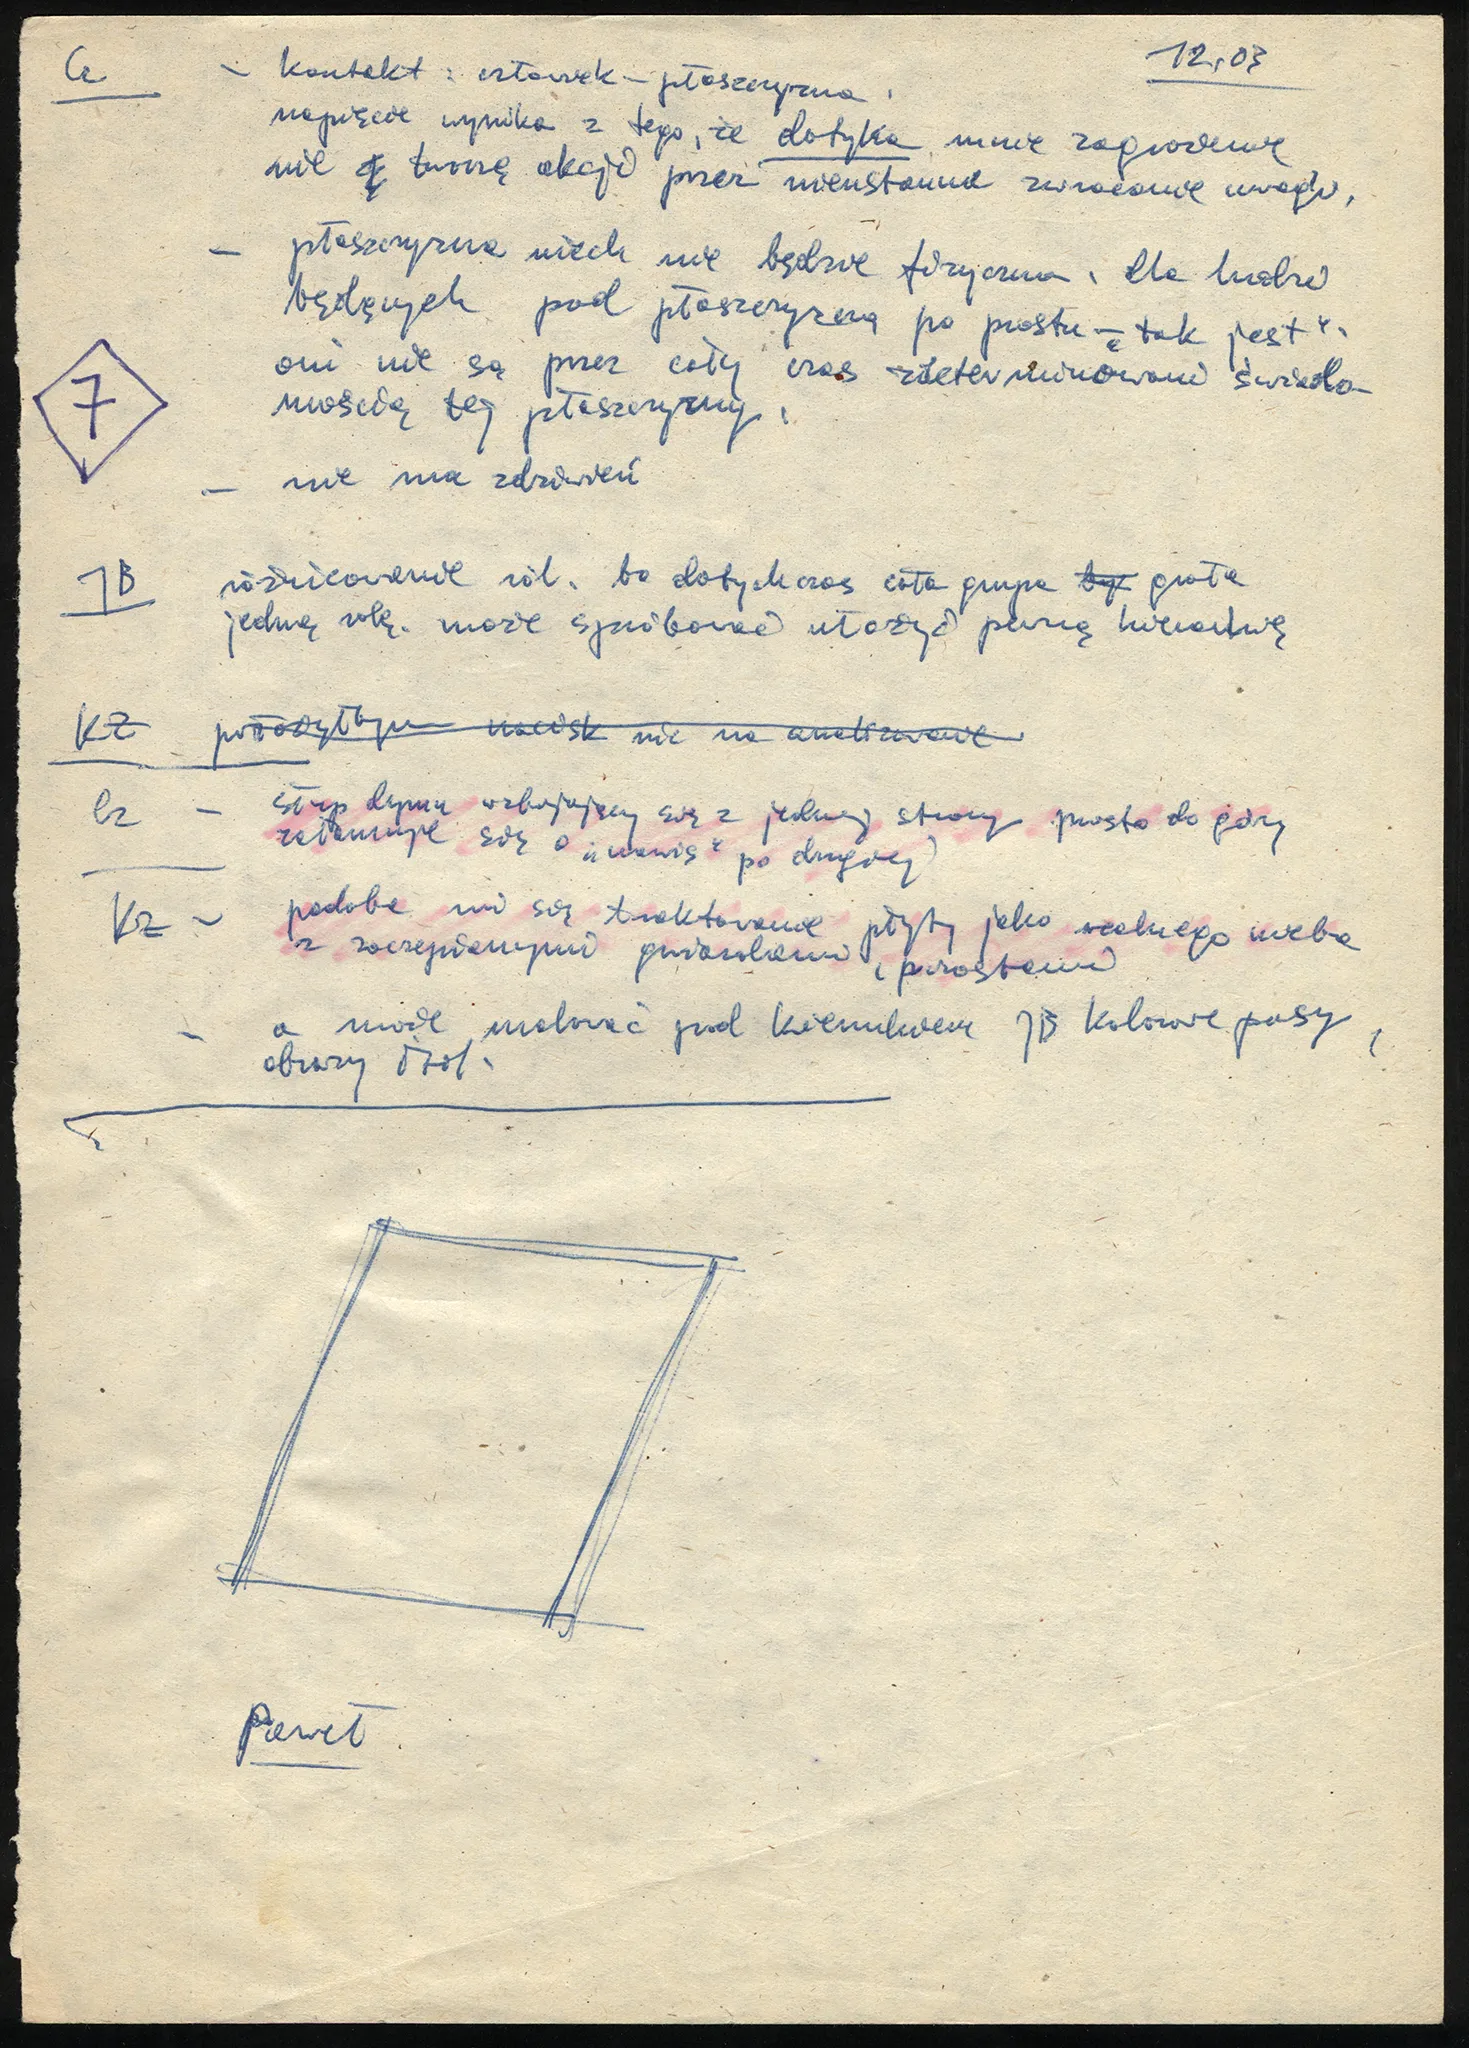 12.03
Cz – kontakt: człowiek – płaszczyzna.
napięcie wynika z tego, że dotyka mnie zagrożenie
nie tworzą akcji przez nieustanne zwracanie uwagi.
– płaszczyzna niech nie będzie fizyczna. dla ludzi
będących pod płaszczyzną po prostu – „tak jest".
oni nie są przez cały czas zdeterminowani świado-
mością tej płaszczyzny.
7
– nie ma zdziwień
JB różnicowanie ról. bo dotychczas cała grupa był grała
jedną rolę. może spróbować ułożyć pewną hierarchię
KZ położyłbym nacisk nie na analizowanie
Cz – słup dymu wzbijający się z jednej strony prosto do góry
załamuje się o „nawis" po drugiej
KZ – podoba mi się traktowanie płyty jako realnego nieba
z zaczepianymi gwiazdami, piorostami
– a może malować pod kierunkiem JB kolorowe pasy,
obrazy itd.
Paweł